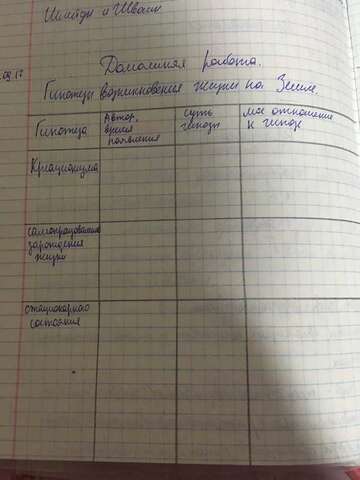 Шлейден и Шванн
Домашняя работа.
.09.17
Гипотезы возникновения жизни на Земле.
Гипотеза
Автор, время появления
суть гипотезы
мое отношение к гипотезе
Креационизма
самопроизвольное
зарождения
жизни
стационарного
состояния